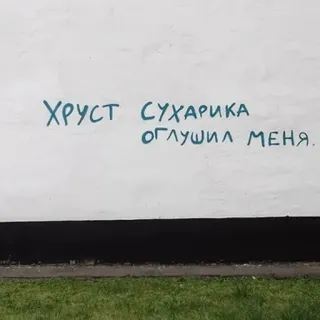 ХРУСТ СУХАРИКА
ОГЛУШИЛ МЕНЯ.